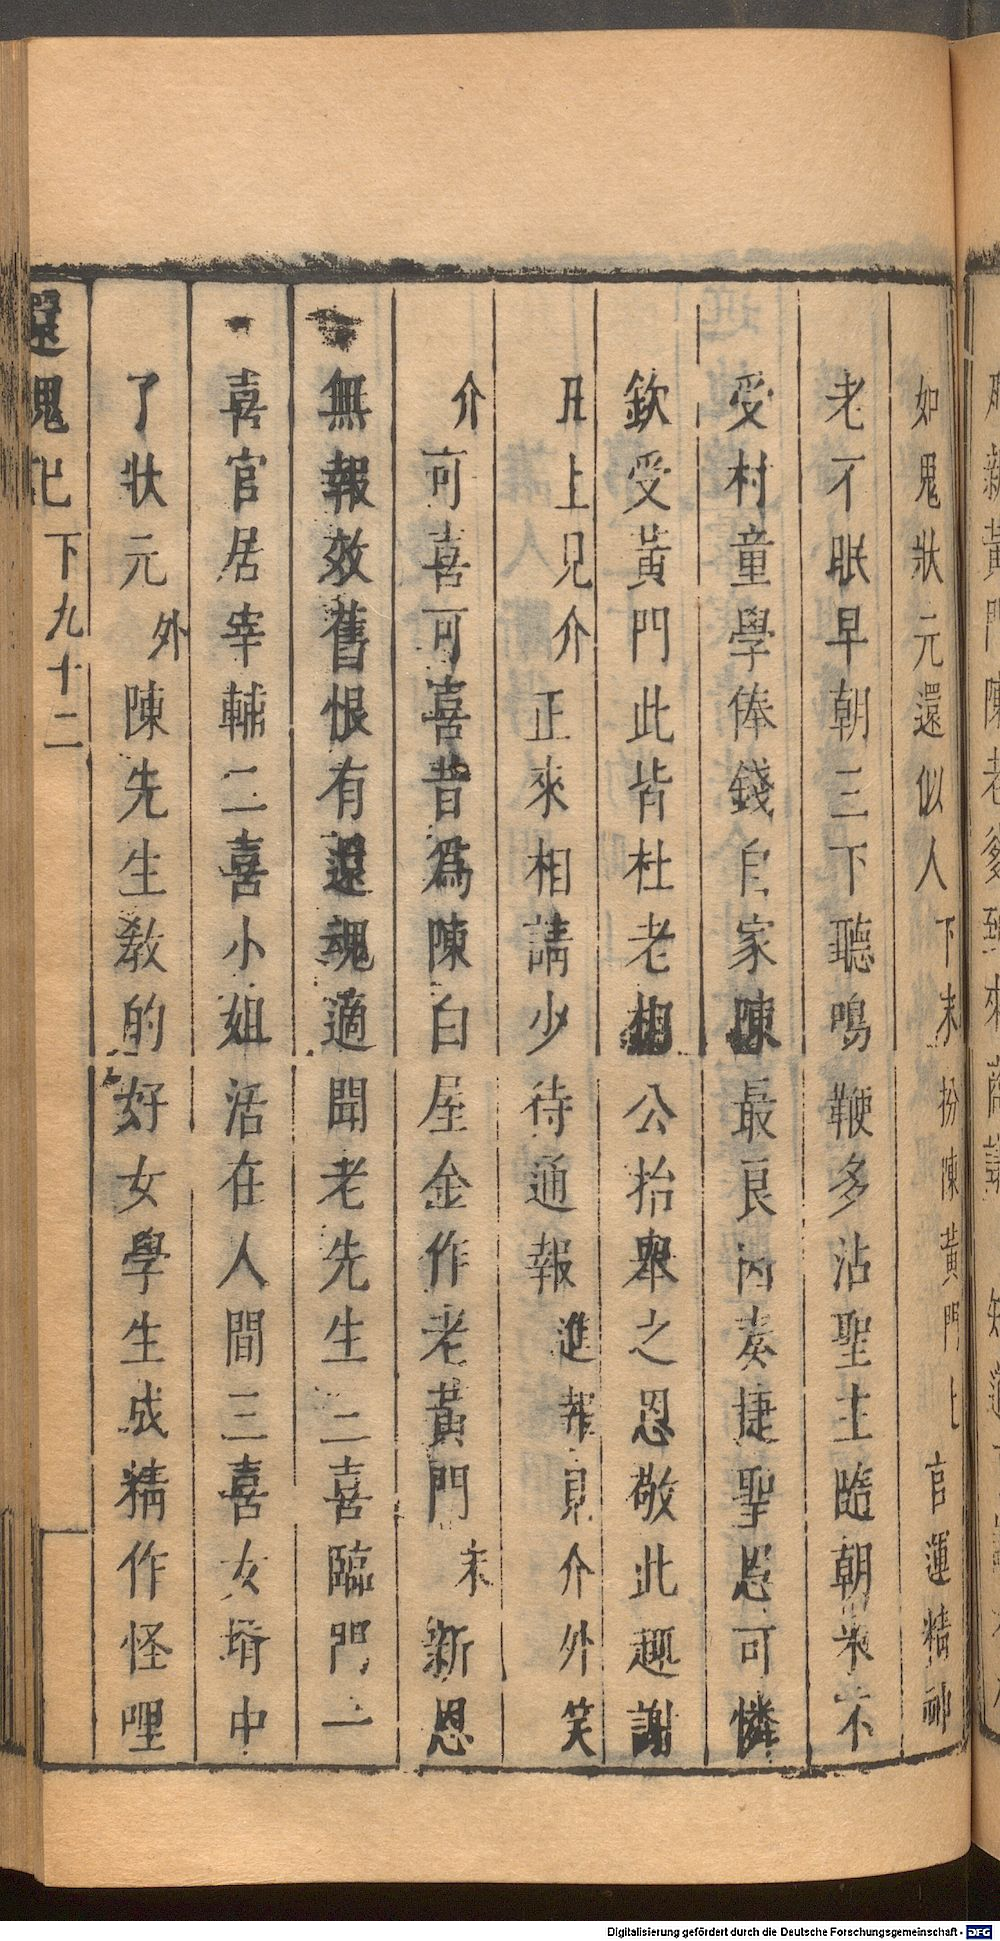 如鬼狀元還似人下末扮陳黃門上官運精神
老不眠早朝三下聽鳴鞭多沾聖主隨朝米不
受村童學俸錢自家陳最良因奏捷聖恩可憐
欽受黃門此皆杜老相公抬舉之恩敬此趨謝
丑上見介正來相請少待通報進報見介外笑
介可喜可喜昔爲陳白屋金作老黃門末新恩
無報效舊恨有還魂適聞老先生二喜臨門一
喜官居宰輔二喜小姐活在人間三喜女壻中
了狀元外陳先生教的好女學生成精作怪哩
還魂記 下九十二
Digitalisierung gefördert durch die Deutsche Forschungsgemeinschaft - DFG